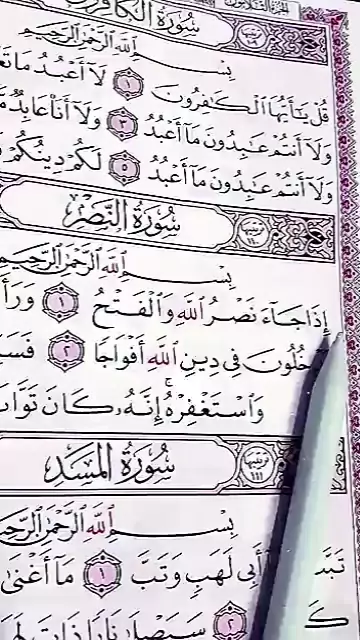 سُورَةُ الكَافِرُونَ
بِسْمِ اللَّهِ الرَّحْمَٰنِ الرَّحِيمِ
قُلْ يَا أَيُّهَا الْكَافِرُونَ ١ لَا أَعْبُدُ مَا
وَلَا أَنتُمْ عَابِدُونَ مَا أَعْبُدُ ٣ وَلَا أَنَا عَابِدٌ
وَلَا أَنتُمْ عَابِدُونَ مَا أَعْبُدُ ٥ لَكُمْ دِينُكُمْ
سُورَةُ النَّصْرِ
بِسْمِ اللَّهِ الرَّحْمَٰنِ الرَّحِيمِ
إِذَا جَاءَ نَصْرُ اللَّهِ وَالْفَتْحُ ١
فِي دِينِ اللَّهِ أَفْوَاجًا ٢
وَاسْتَغْفِرْهُ إِنَّهُ كَانَ
سُورَةُ المَسَدِ
بِسْمِ اللَّهِ الرَّحْمَٰنِ
أَبِي لَهَبٍ وَتَبَّ ١ مَا أَغْنَىٰ
٢ سَيَصْلَىٰ نَارًا ذَاتَ